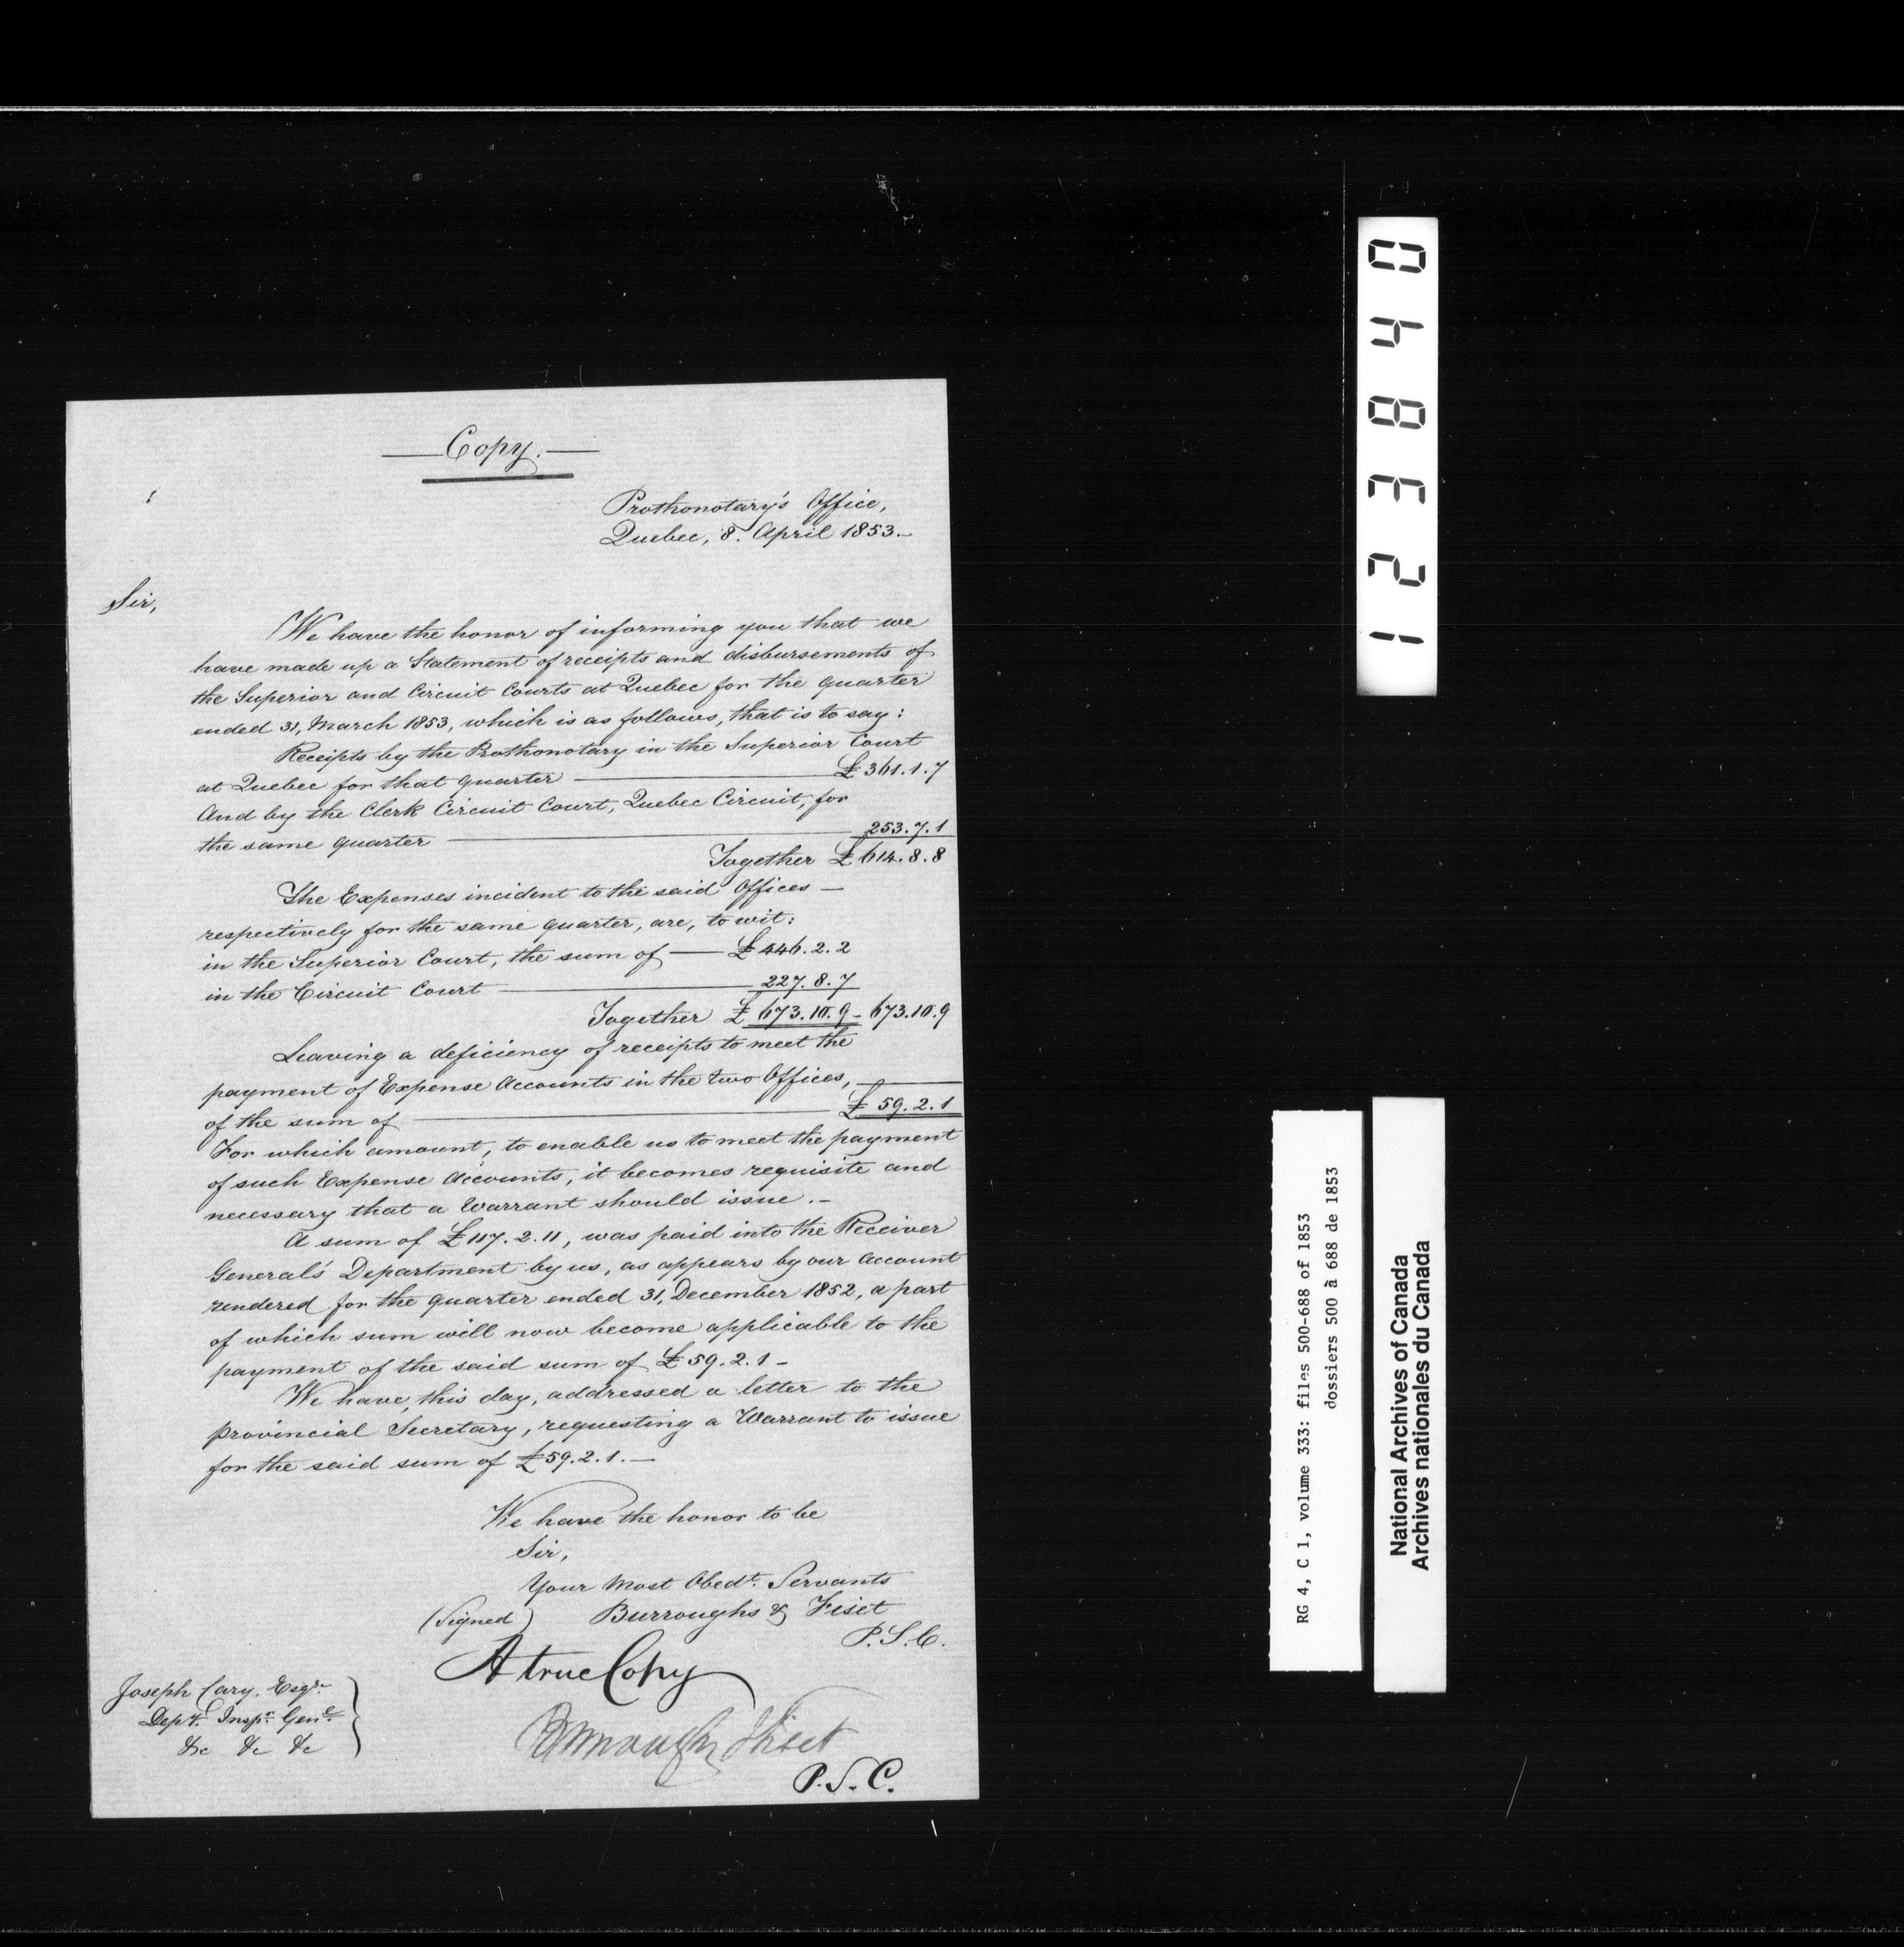 Copy.
Prothonotary's Office,
Quebec, 8. April 1853.
Sir,
We have the honor of informing you that we
have made up a Statement of receipts and disbursements of
the Superior and Circuit Courts at Quebec for the quarter
ended 31, March 1853, which is as follows, that is to say:
Receipts by the Prothonotary in the Superior Court
at Quebec for that quarter — £361.1.7
And by the Clerk Circuit Court, Quebec Circuit, for
the same quarter — 253.7.1
Together £614.8.8
The Expenses incident to the said Offices —
respectively for the same quarter, are, to wit:
in the Superior Court, the sum of — £446.2.2
in the Circuit Court — 227.8.7
Together £673.10.9 - 673.10.9
Leaving a deficiency of receipts to meet the
payment of Expense Accounts in the two Offices, —
of the sum of — £59.2.1
For which amount, to enable us to meet the payment
of such Expense Accounts, it becomes requisite and
necessary that a Warrant should issue.-
A sum of £117.2.11, was paid into the Receiver
General's Department by us, as appears by our account
rendered for the quarter ended 31, December 1852, a part
of which sum will now become applicable to the
payment of the said sum of £59.2.1-
We have, this day, addressed a letter to the
provincial Secretary, requesting a Warrant to issue
for the said sum of £59.2.1.—
We have the honor to be
Sir,
Your Most Obedt. Servants
(Signed) Burroughs & Fiset
P.S.C.
A true Copy
Burroughs & Fiset
P.S.C.
Joseph Cary, Esqr.
Depy. Inspr. Genl.
&c &c &c
123840
RG 4, C 1, volume 333: files 500-688 of 1853
dossiers 500 à 688 de 1853
National Archives of Canada
Archives nationales du Canada